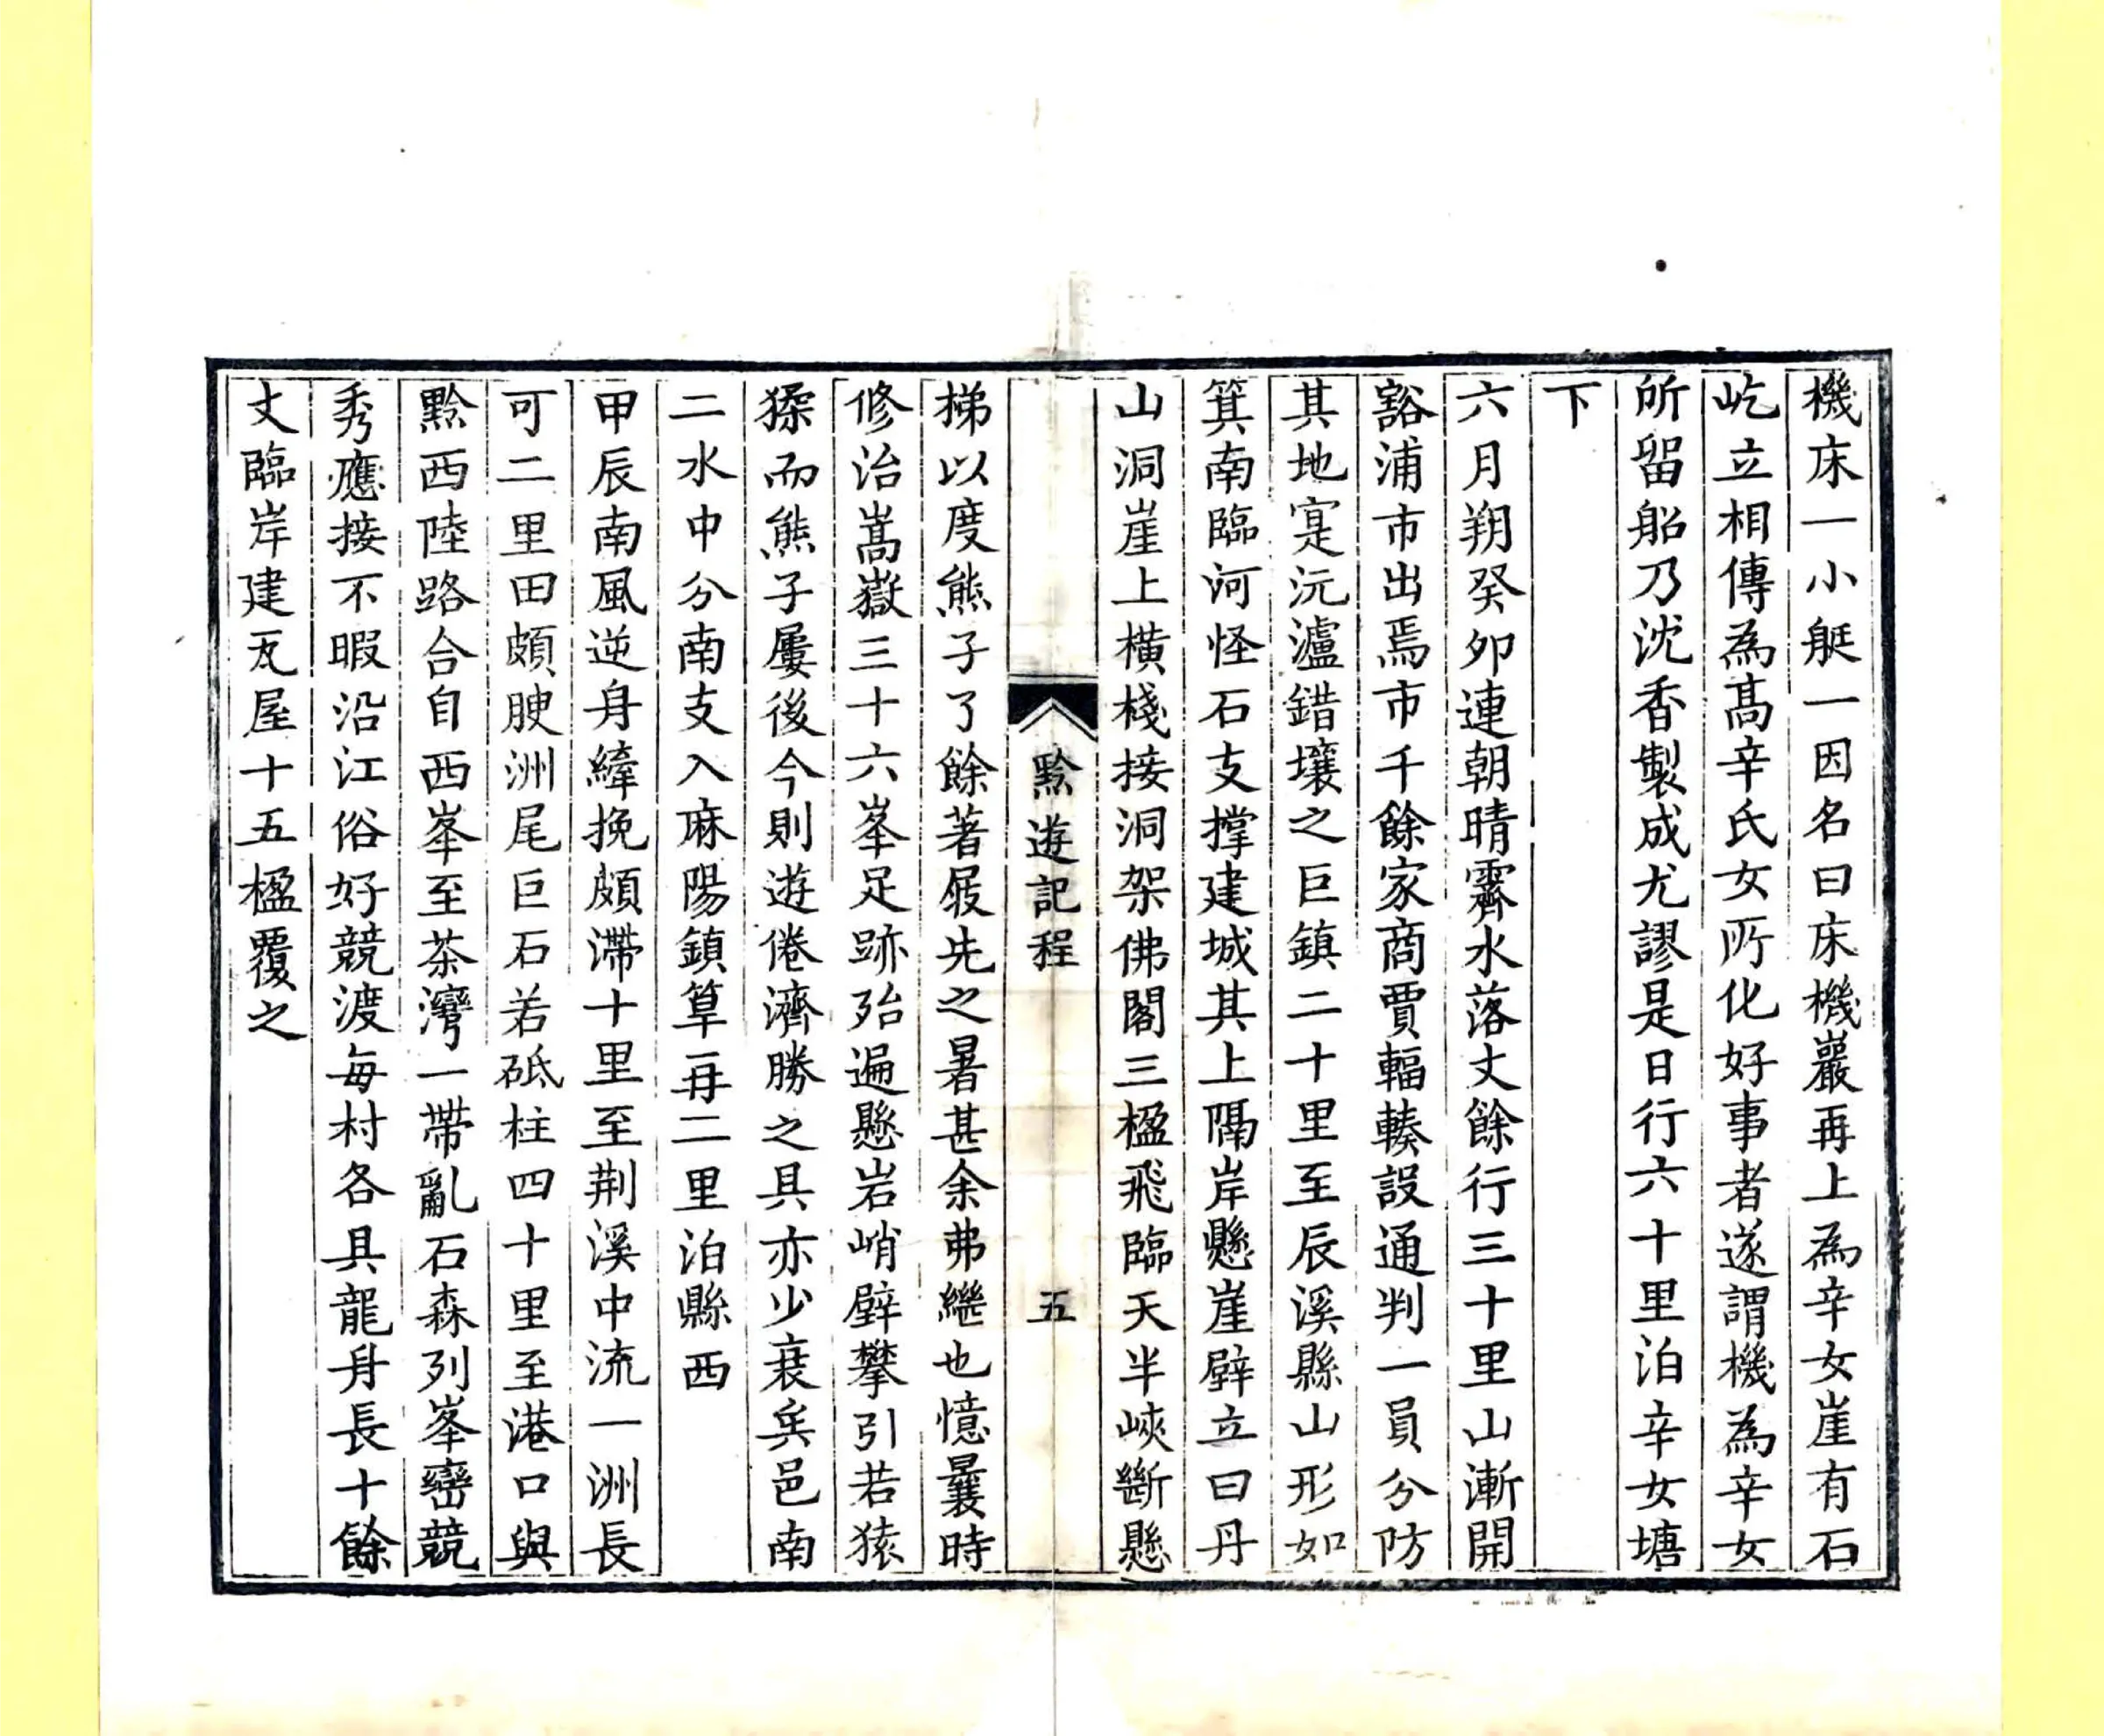 機床一小艇一因名曰床機巖再上為辛女崖有石
屹立相傳為高辛氏女所化好事者遂謂機為辛女
所留船乃沈香製成尤謬是日行六十里泊辛女塘
下
六月朔癸夘連朝晴霽水落丈餘行三十里山漸開
豁浦市出焉市千餘家商賈輻輳設通判一員分防
其地寔沅瀘錯壤之巨鎮二十里至辰溪縣山形如
箕南臨河怪石支撑建城其上隔岸懸崖壁立曰丹
山洞崖上橫棧接洞架佛閣三楹飛臨天半峽斷懸
黔遊記程 五
梯以度熊子了餘著屐先之暑甚余弗繼也憶曩時
修治嵩嶽三十六峯足跡殆遍懸岩峭壁攀引若猿
猱而熊子屢後今則遊倦濟勝之具亦少衰矣邑南
二水中分南支入麻陽鎮筸再二里泊縣西
甲辰南風逆身縴挽頗滯十里至荆溪中流一洲長
可二里田頗腴洲尾巨石若砥柱四十里至港口與
黔西陸路合自西峯至茶灣一帶亂石森列峯巒競
秀應接不暇沿江俗好競渡每村各具龍舟長十餘
丈臨岸建瓦屋十五楹覆之